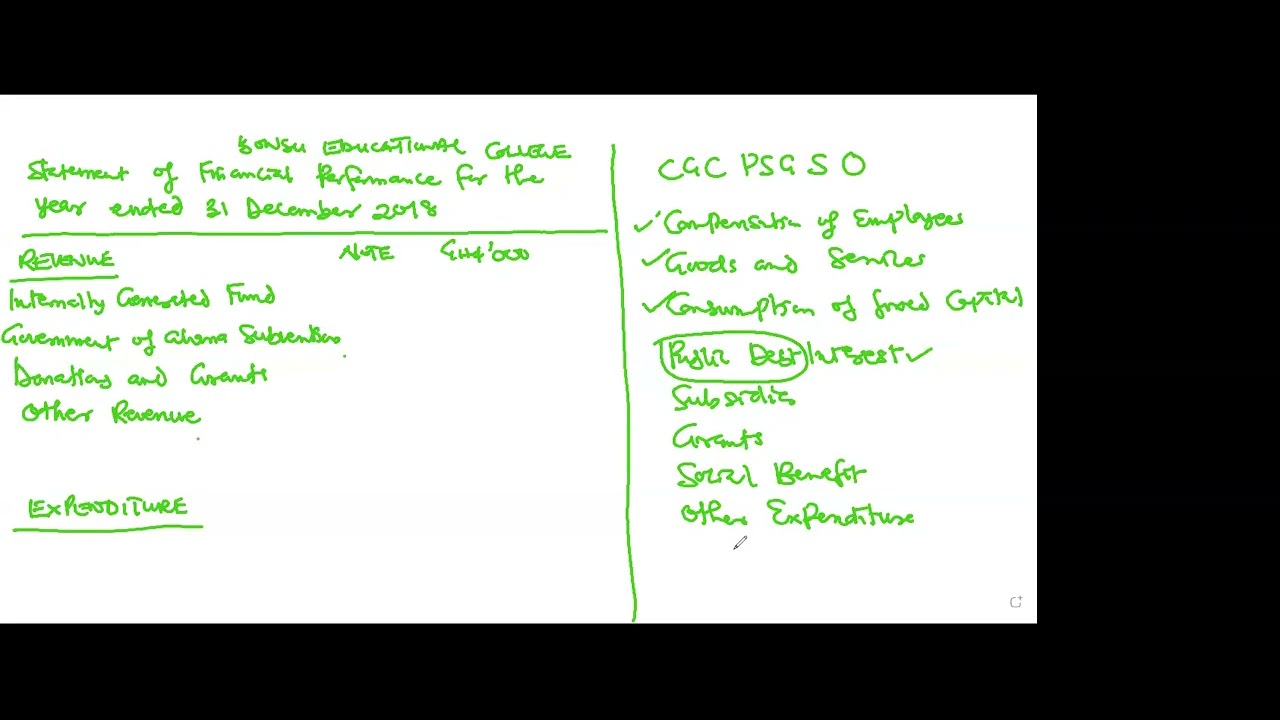 BONSU EDUCATIONAL COLLEGE
Statement of Financial Performance for the
year ended 31 December 2018
NOTE GH¢'000
REVENUE
Internally Generated Fund
Government of Ghana Subvention
Donations and Grants
Other Revenue
EXPENDITURE
CGC PSGSO
Compensation of Employees
Goods and Services
Consumption of fixed Capital
Public Debt Interest
Subsidies
Grants
Social Benefit
Other Expenditure